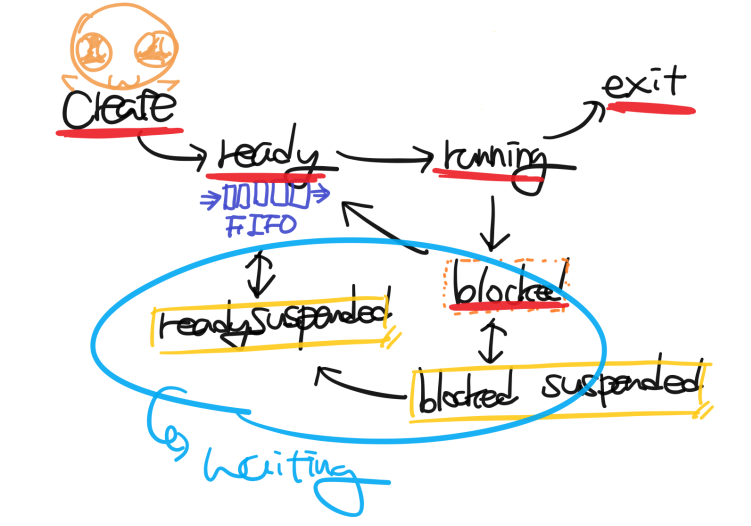 exit
Create
ready
running
FIFO
blocked
ready suspended
blocked suspended
waiting